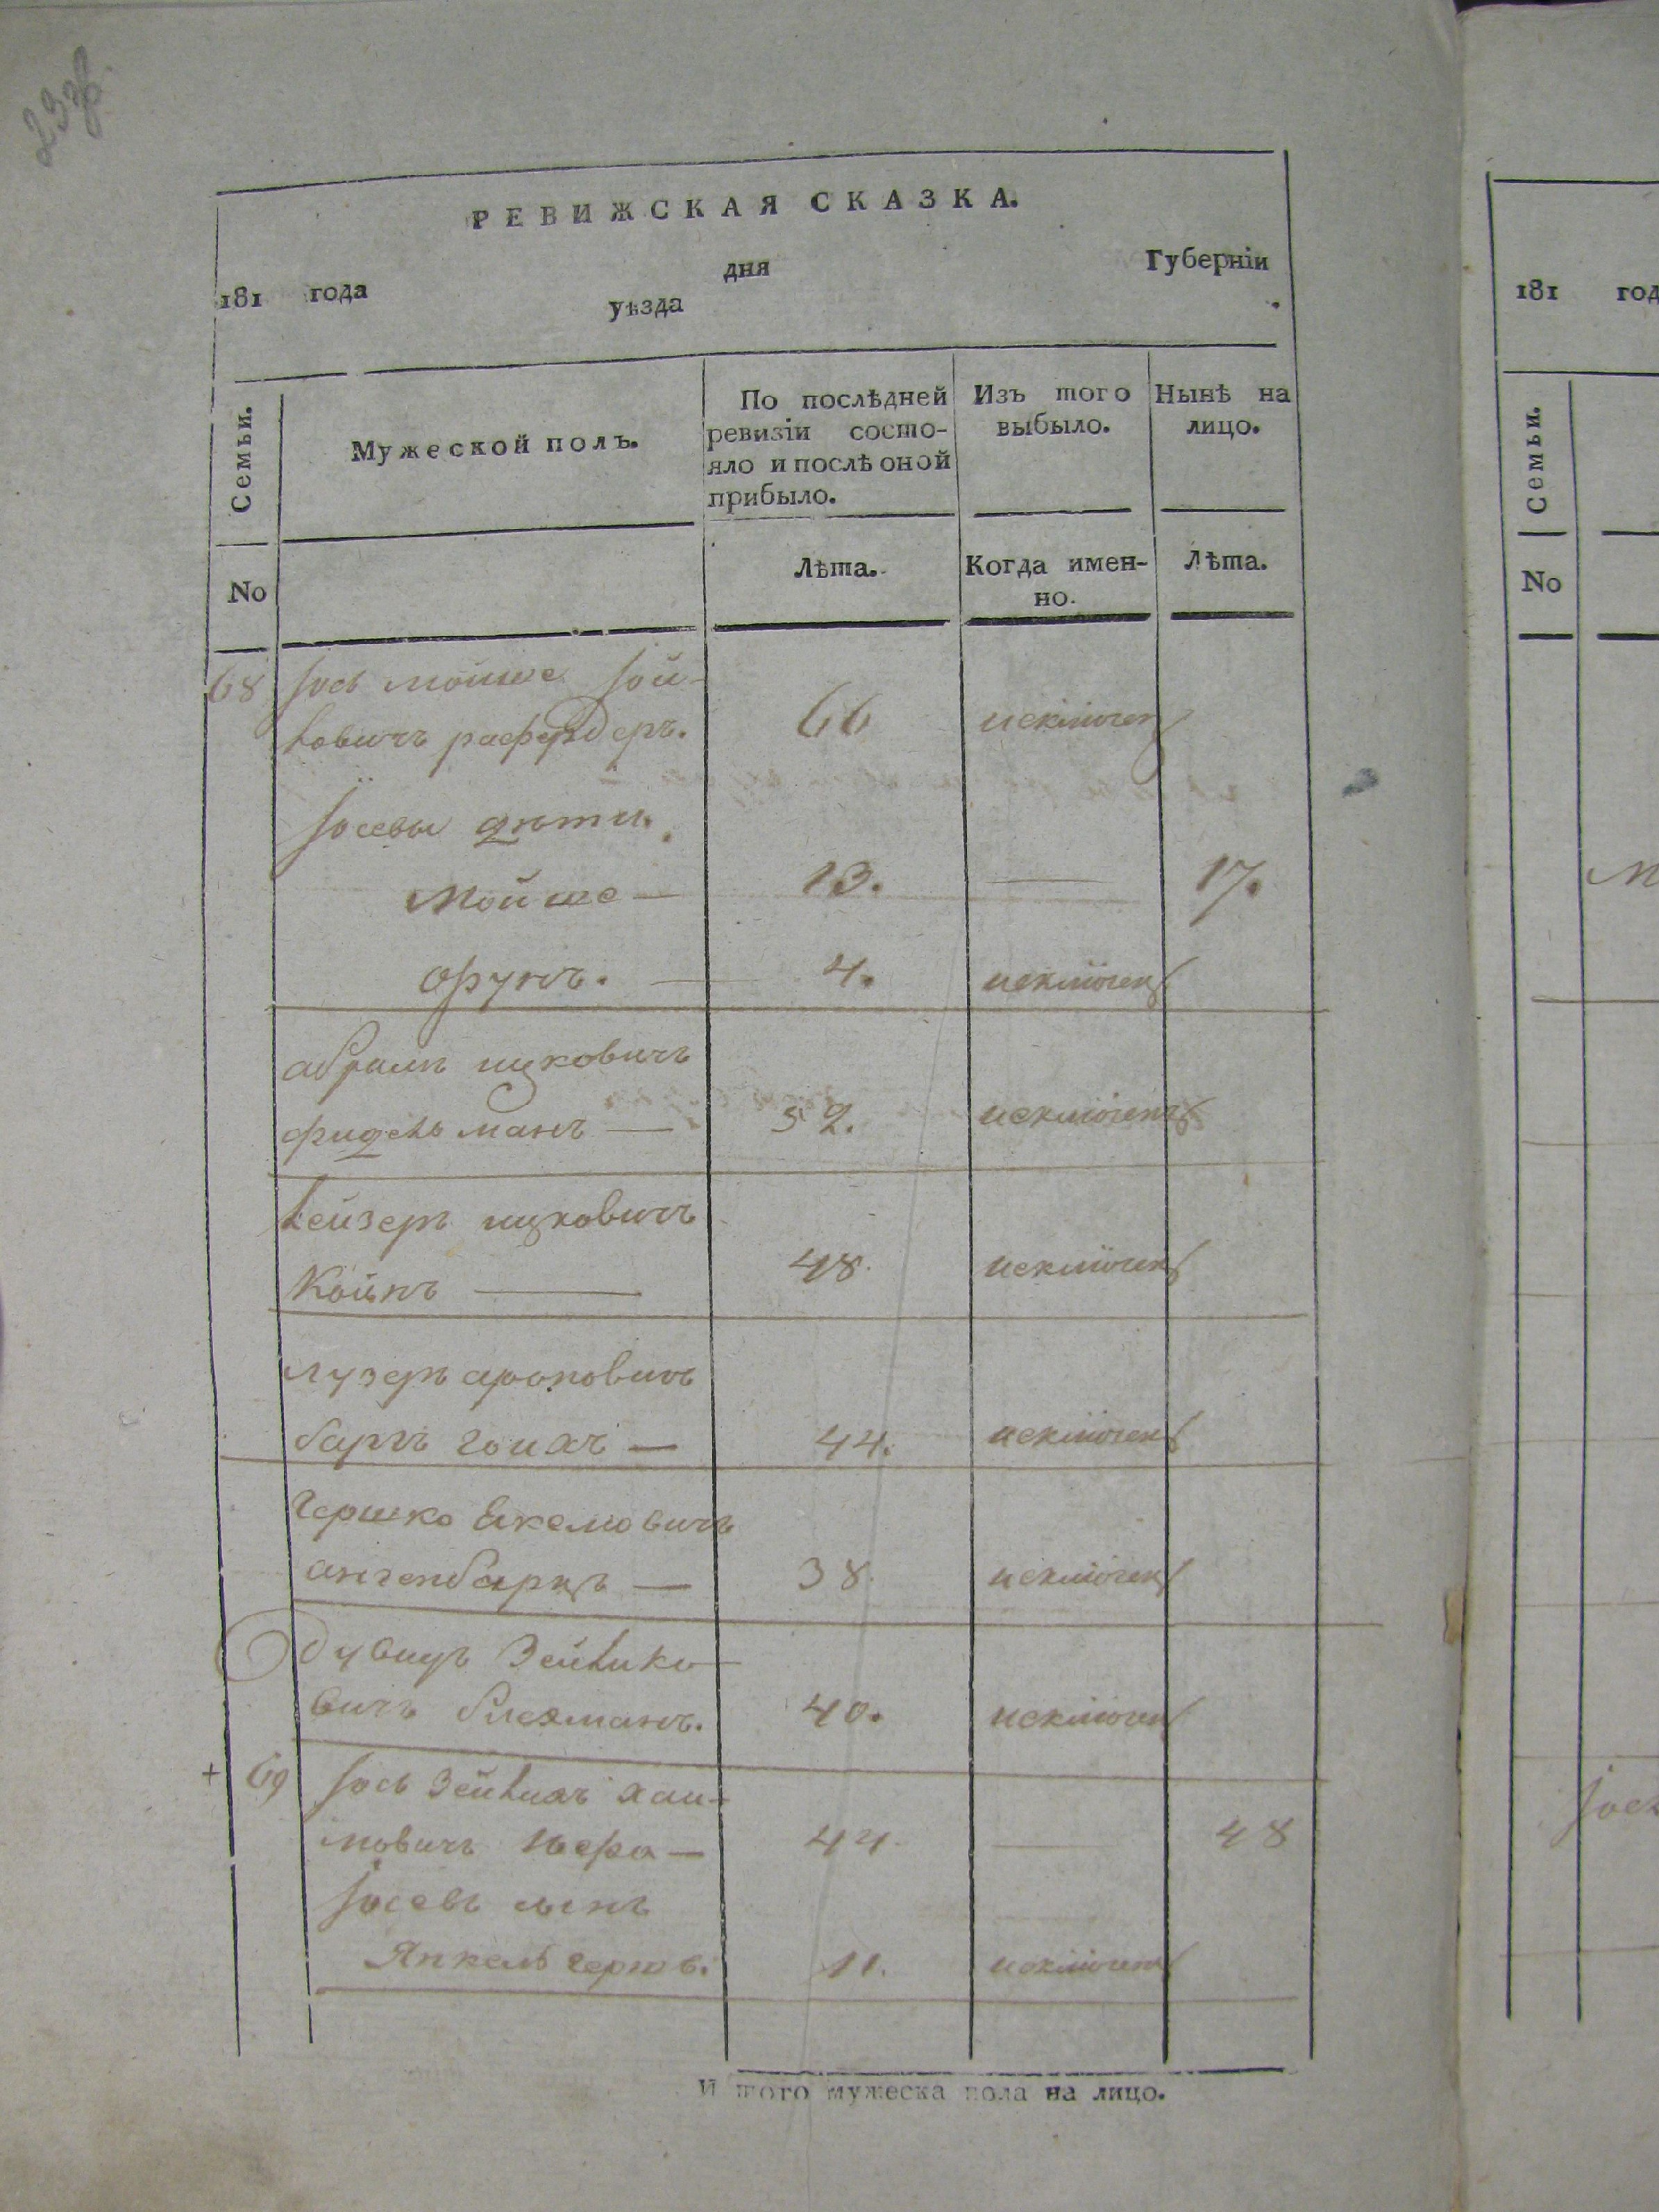 РЕВИЖСКАЯ СКАЗКА.
181 года дня Губерніи
уѣзда
Семьи.
Мужеской полъ.
По послѣдней ревизіи состо-
яло и послѣ оной прибыло.
Изъ того выбыло.
Нынѣ на лицо.
No
Лѣта.
Когда имен-
но.
Лѣта.
68 Іось мойше Іой-
ловичъ 66 исключен
Іосевы дѣти.
Мойше — 13. — 17.
Срулъ. — 4. исключен
абрамъ ицковичъ
фидельманъ — 52. исключенъ
Лейзеръ ицковичъ
Койнъ — 48. исключен
лузеръ ароновичъ
— 44. исключен
Гершко
— 38. исключен
Дувидъ Зейлико-
вичъ блехманъ. 40. исключен
+ 69 Іось Зейликъ хаи-
мовичъ — 44. — 48
Іосевъ сынъ
Янкель герш. 11. исключен
И того мужеска пола на лицо.
181 год
Семьи.
No
М